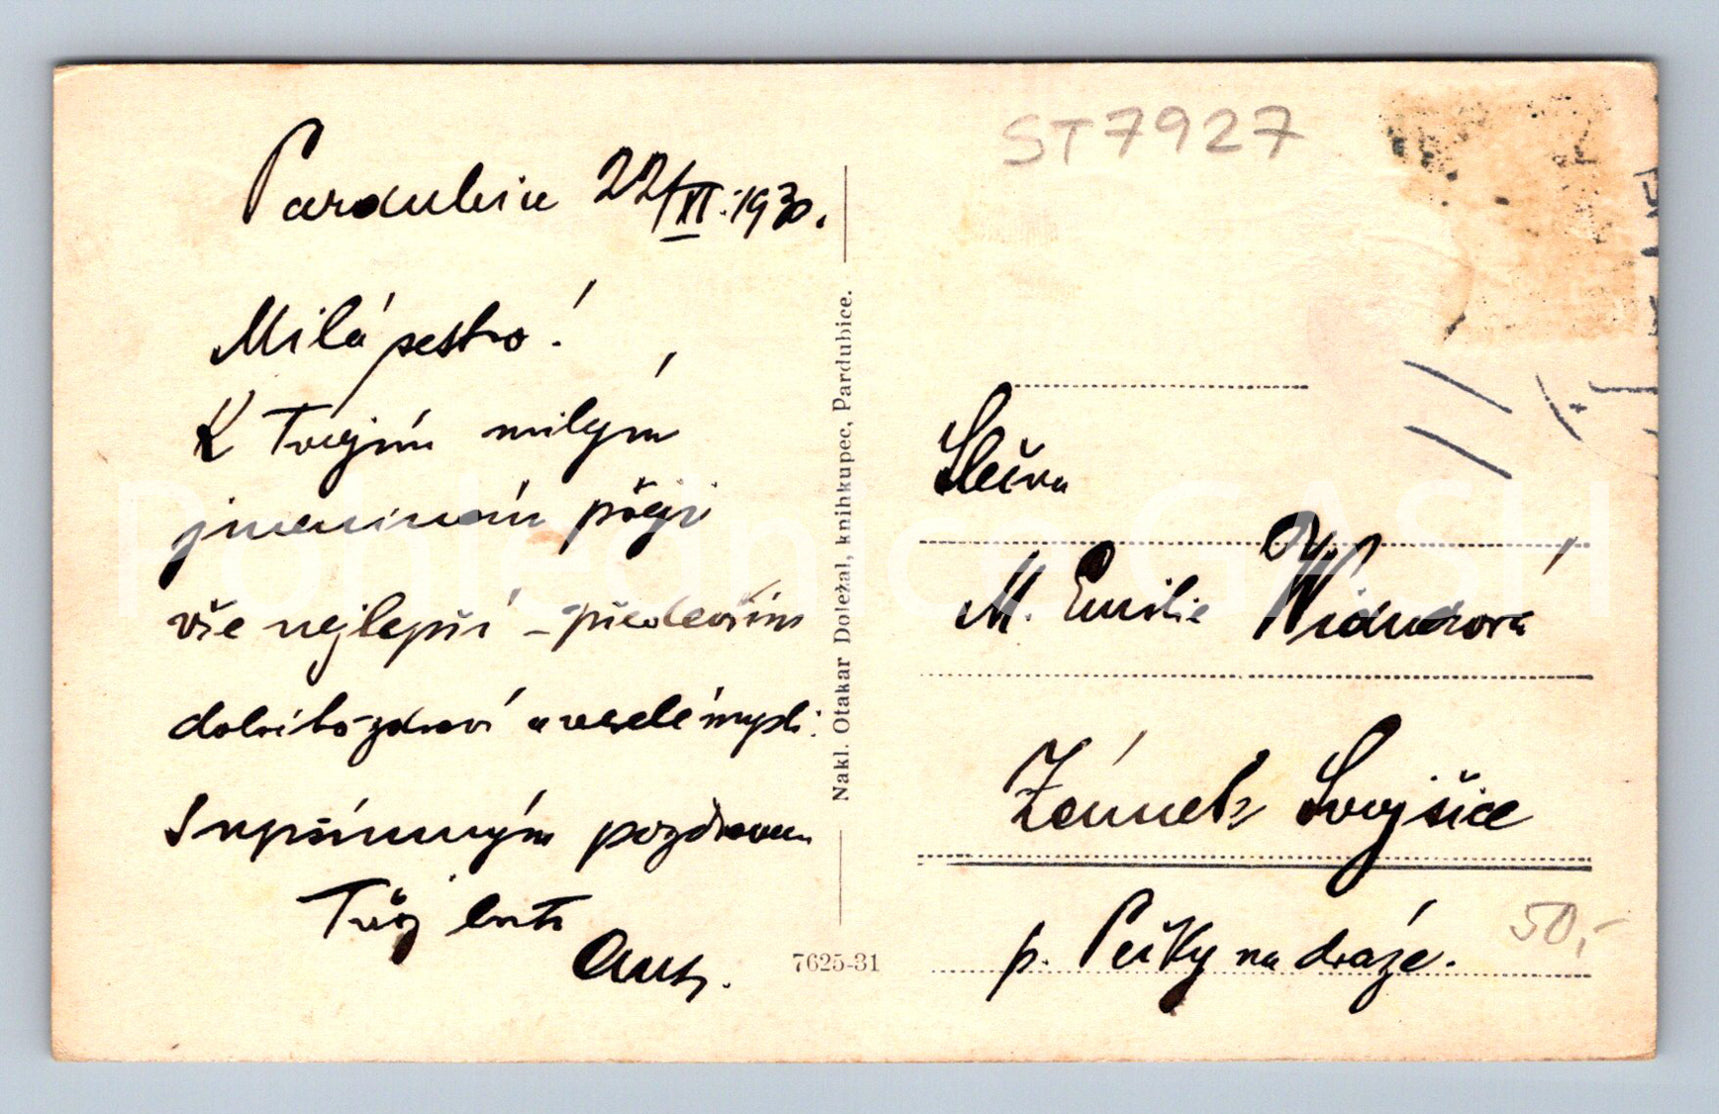 ST7927
Pardubice 22/XI. 1930.
Milá sestro!
K Tvojím milým
jmeninám přeji
vše nejlepší – především
dobrého zdraví a veselé mysli.
S upřímným pozdravem
Tvůj bratr
Slečna
M. Emilie
Zámek Svojšice
p. Pečky na dráze.
50,-
Nakl. Otakar Doležal, knihkupec, Pardubice.
7625-31